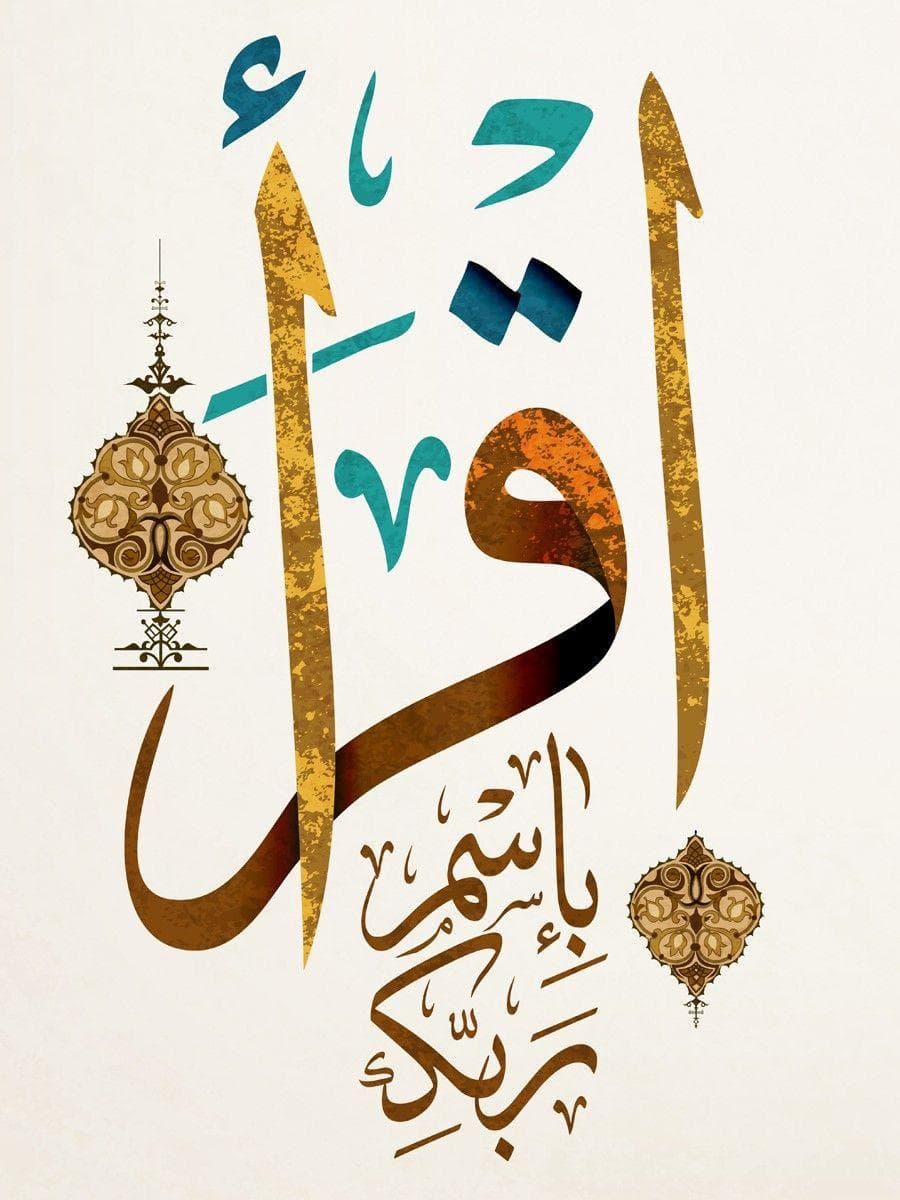 اقْرَأ
بِإسْم
رَبّك